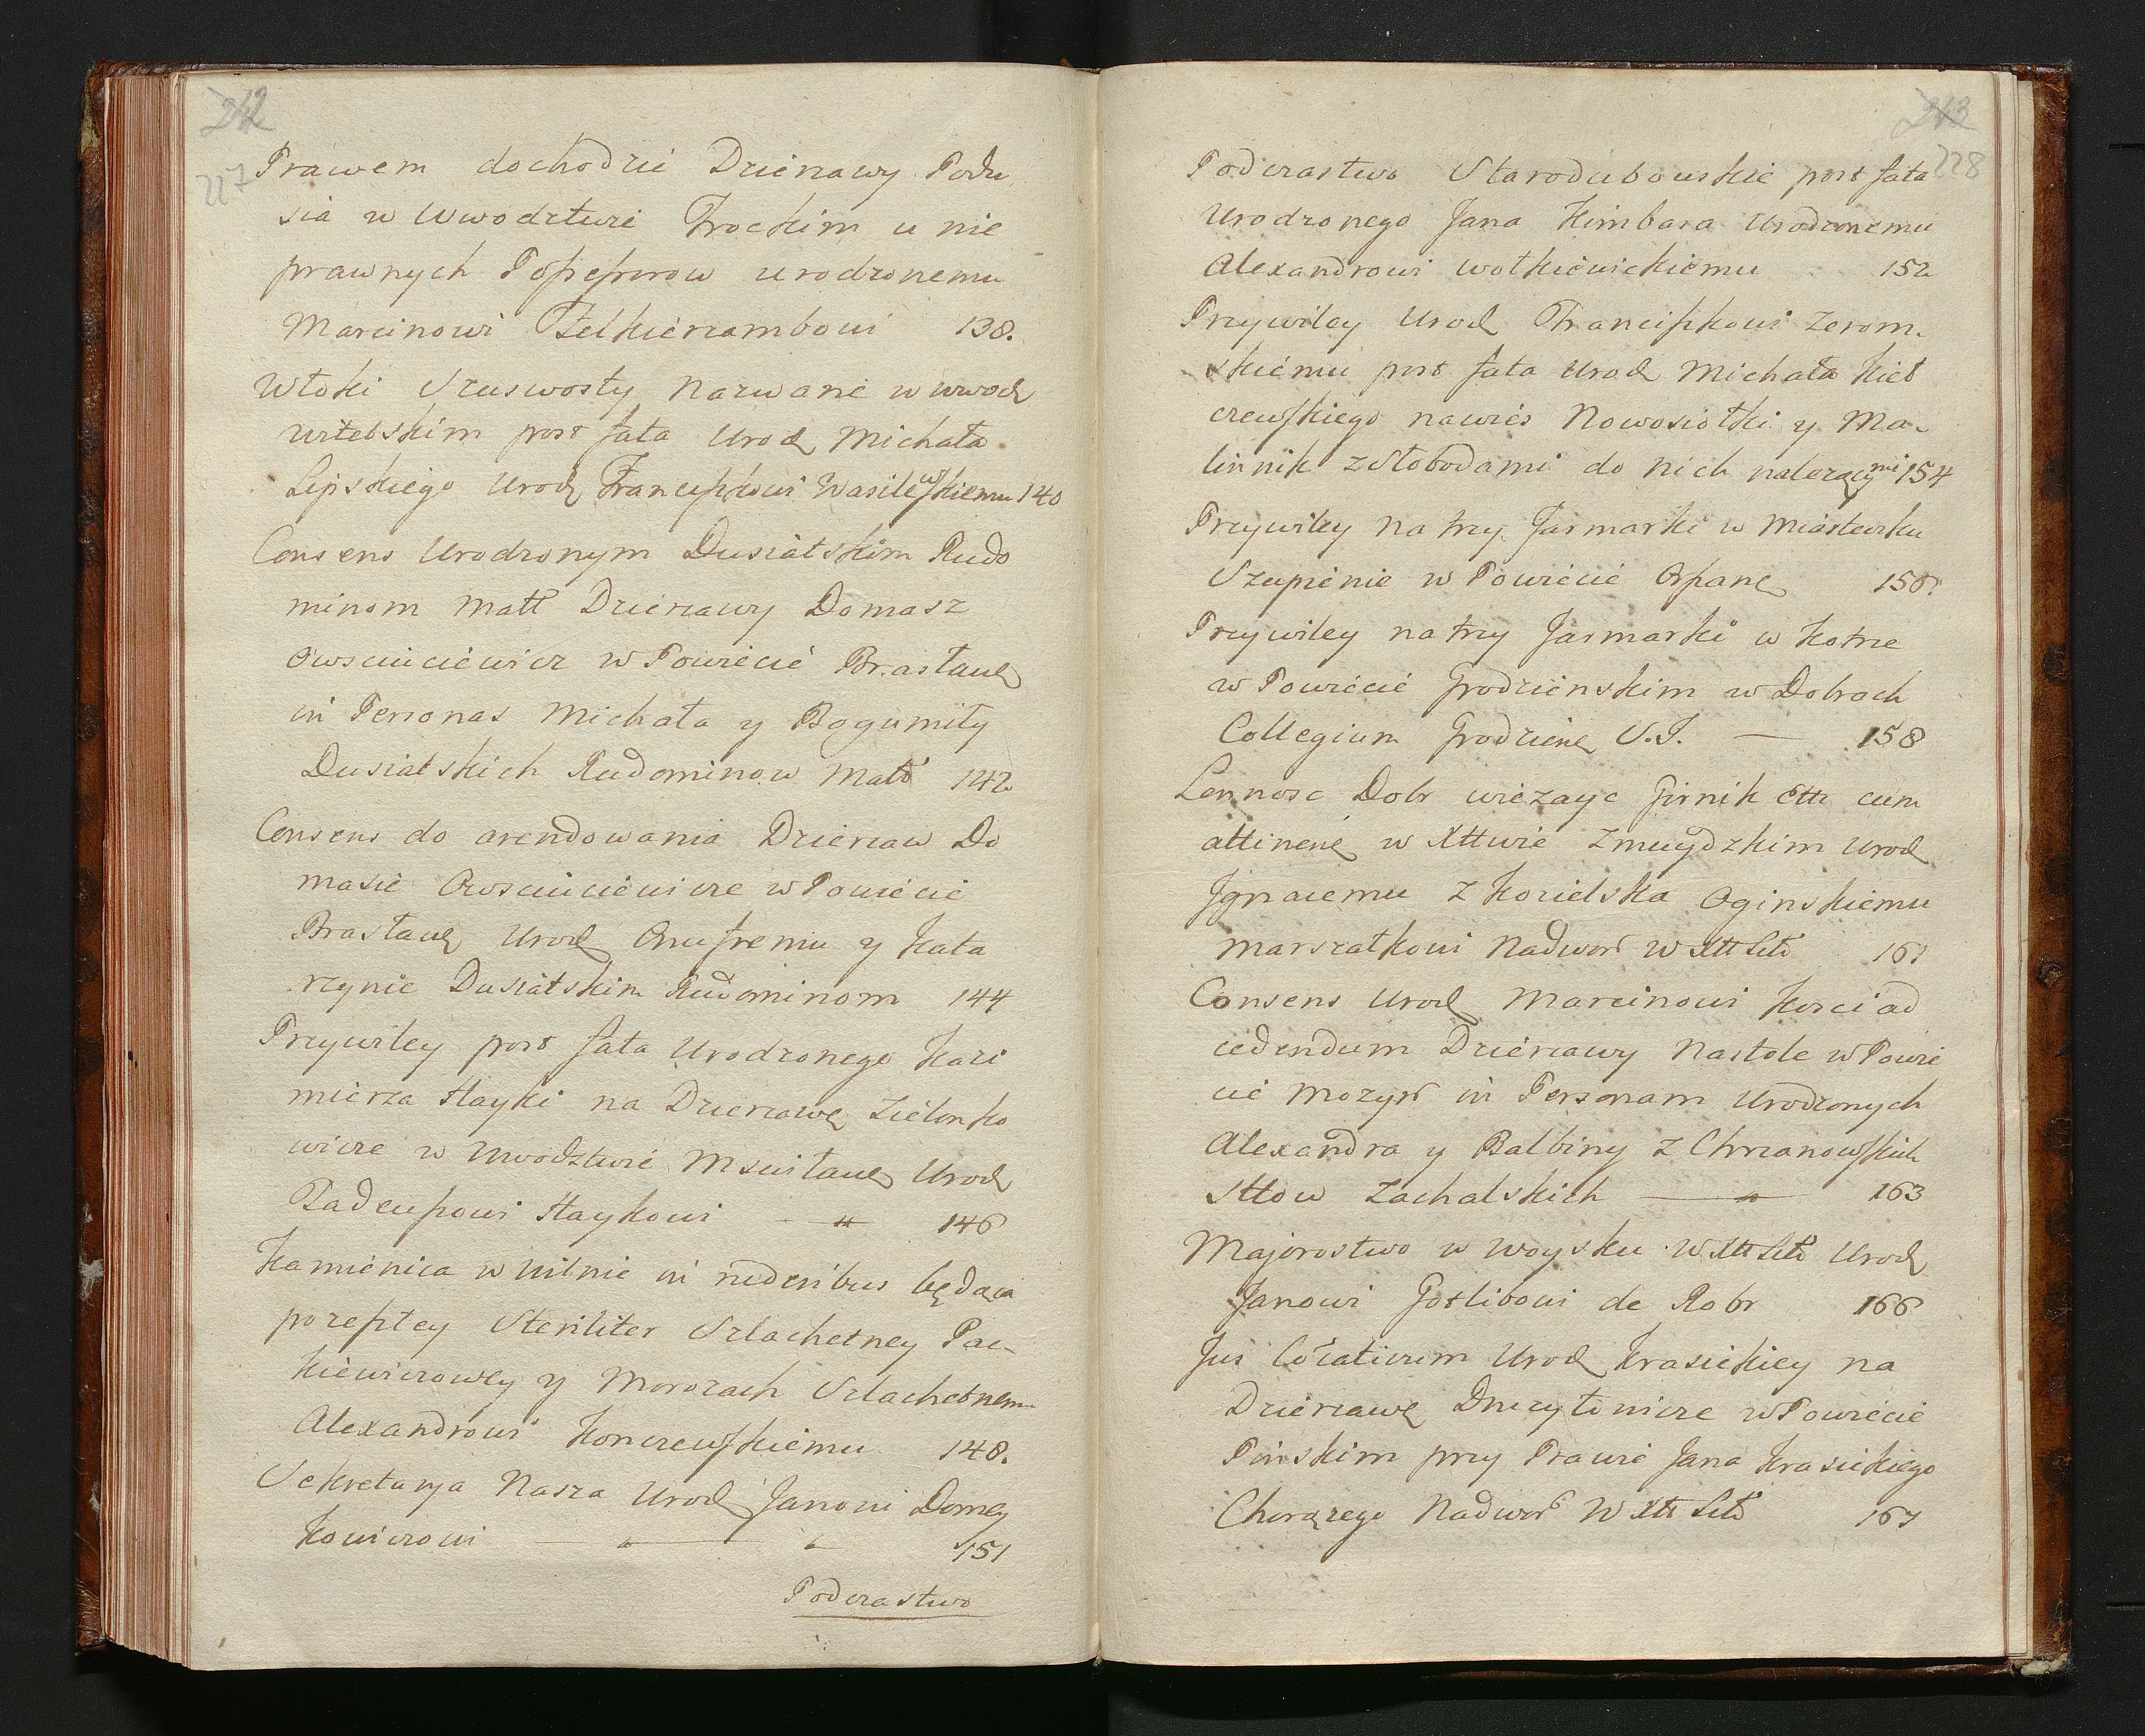 242
227
Prawem dochodzić Dzierżawy Podu
sia w Wwodztwie Trockim u nie
prawnych Possessorow urodzonemu
Marcinowi Felkierzambowi 138.
Włoki Szuswosty nazwane w wwodz
witebskim post fata Urodz Michała
Lipskiego Urodz Franciszkowi Wasilewskiemu 140
Consens Urodzonym Dusiatskim Rudo
minom Małż Dzierżawy Domasz
Owsciuciewicz w Powiecie Brasławs
in Personas Michała y Bogumiły
Dusiatskich Rudominow Małż 142
Consens do arendowania Dzierżaw Do
masze Owsciuciewicze w Powiecie
Brasławs Urodz Onufremu y Kata
rzynie Dusiatskim Rudominom 144
Przywiley post fata Urodzonego Kazi
mierza Hayki na Dzierżawę Zielonko
wicze w Wwodztwie Mscisławs Urodz
Haykowi 146
Kamienica w Wilnie in ruderibus będąca
pozeszłey steriliter Szlachetney Pac-
kiewiczowey y Morozach Szlachetnem
Alexandrowi Konczewskiemu 148.
Sekretarya Nasza Urodz Janowi Domey
kowiczowi 151
Podczastwo
243
228
Podczastwo Starodubowskie post fata
Urodzonego Jana Kimbara Urodzonemu
Alexandrowi Wołkiewickiemu 152
Przywiley Urodz Franciszkowi Zerom-
skiemu post fata Urodz Michała Kieł
czewskiego na wieś Nowosiołki y Ma-
linnik z Słobodami do nich należącymi 154
Przywiley na trzy Jarmarki w Miasteczku
Szupienie w Powiecie Oszmans 156.
Przywiley na trzy Jarmarki w Kotrze
w Powiecie Grodzieńskim w Dobrach
Collegium Grodziens S.J. — 158
Lennosc Dobr wiezayc Girnik Ettc cum
attinenc w Xttwie Zmuydzkim Urodz
Ignacemu z Kozielska Oginskiemu
Marszałkowi Nadwor W Xtt Litt 161
Consens Urodz Marcinowi Korci ad
cedendum Dzierżawy Nastole w Powie
cie Mozyr in Personam Urodzonych
Alexandra y Balbiny z Chrzanowskich
Sttow Zachalskich 163
Majorostwo w woysku W Xtt Litt Urodz
Janowi Gotlibowi de Robr 166
Jus Co'cativum Urodz Krasickiey na
Dzierżawę Druzyłowicze w Powiecie
Pińskim przy Prawie Jana Krasickiego
Chorążego Nadwor W Xtt Litt 167